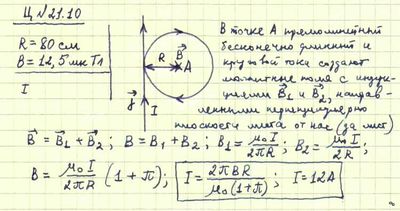 Ц №21.10
R = 80 см
B = 12,5 мкТл
I
R B⃗ A
I
В точке А прямолинейный
бесконечно длинный и
круговой токи создают
магнитные поля с индук-
циями B⃗₁ и B⃗₂, направ-
ленными перпендикулярно
плоскости листа от нас (за лист)
B⃗ = B⃗₁ + B⃗₂; B = B₁ + B₂; B₁ = μ₀I/2πR; B₂ = μ₀I/2R;
B = μ₀I/2πR (1 + π); I = 2πBR/μ₀(1+π); I = 12A